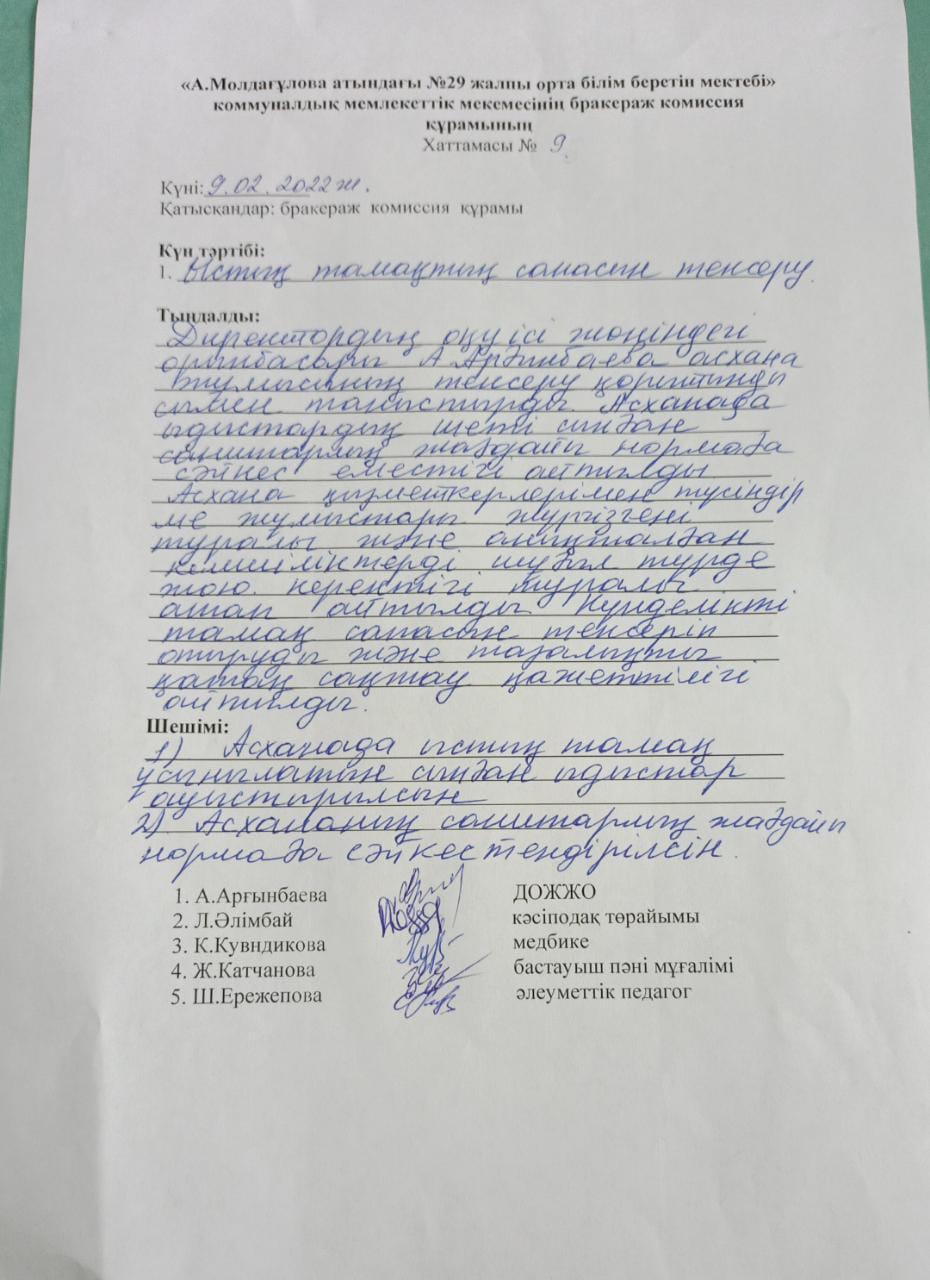 «А.Молдағұлова атындағы №29 жалпы орта білім беретін мектебі»
коммуналдық мемлекеттік мекемесінің бракераж комиссия
құрамының
Хаттамасы № 9
Күні: 9.02.2022 ж.
Қатысқандар: бракераж комиссия құрамы
Күн тәртібі:
1. Ыстық тамақтың сапасын тексеру.
Тыңдалды:
Директордың оқу ісі жөніндегі
орынбасары А Арғынбаева асхана
жұмысының тексеру қорытынды
сымен таныстырды. Асханада
ыдыстардың шеті сынған
санитарлық жағдайы нормаға
сәйкес еместігі айтылды
Асхана қызметкерлерімен түсіндір
ме жұмыстары жүргізгені
туралы және анықталған
кемшіліктерді шұғыл түрде
жою керектігі туралы
атап айтылды. Күнделікті
тамақ сапасын тексеріп
отыруды және тазалықты
қатаң сақтау қажеттілігі
айтылды.
Шешімі:
1) Асханада ыстық тамақ
ұсынылатын сынған ыдыстар
ауыстырылсын
2) Асхананың санитарлық жағдайы
нормаға сәйкестендірілсін.
1. А.Арғынбаева ДОЖЖО
2. Л.Әлімбай кәсіподақ төрайымы
3. К.Кувндикова медбике
4. Ж.Катчанова бастауыш пәні мұғалімі
5. Ш.Ережепова әлеуметтік педагог